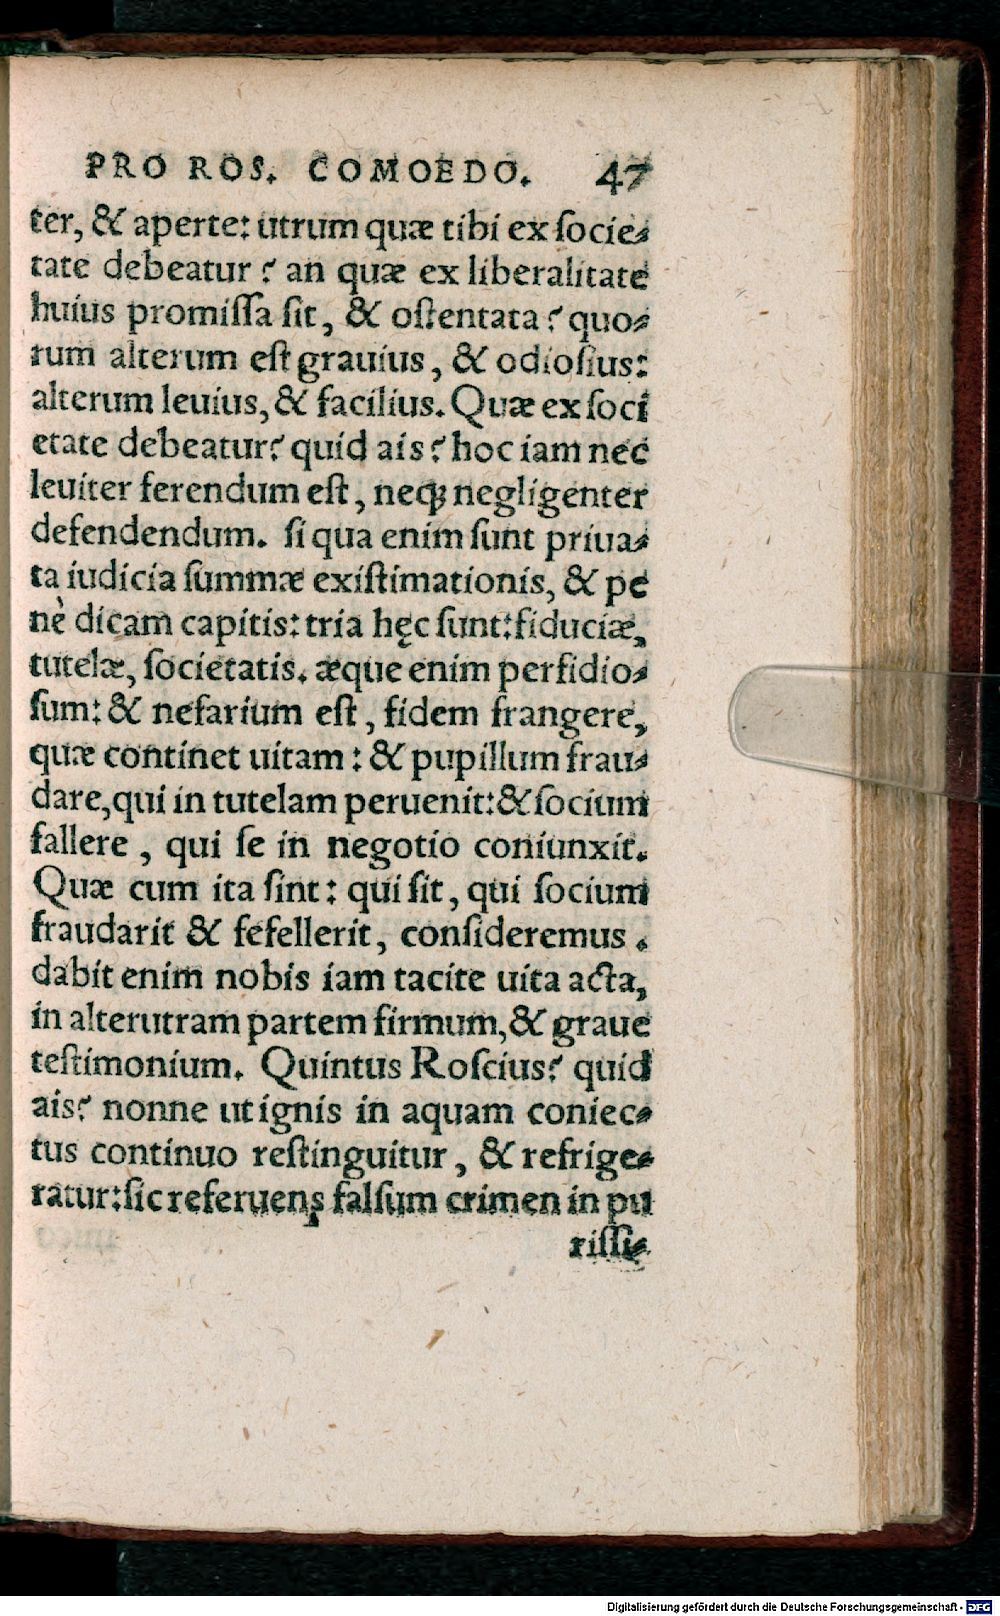 PRO ROS. COMOEDO. 47
ter, & aperte: utrum quæ tibi ex ſocie-
tate debeatur? an quæ ex liberalitate
huius promiſſa ſit, & oſtentata? quo-
rum alterum eſt grauius, & odioſius:
alterum leuius, & facilius. Quæ ex ſoci
etate debeatur? quid ais? hoc iam nec
leuiter ferendum eſt, neqꝫ negligenter
defendendum. ſi qua enim ſunt priua-
ta iudicia ſummæ exiſtimationis, & pe
nè dicam capitis: tria hęc ſunt: fiduciæ,
tutelæ, ſocietatis. æque enim perfidio-
ſum: & nefarium eſt, fidem frangere,
quæ continet uitam: & pupillum frau-
dare, qui in tutelam peruenit: & ſocium
fallere, qui ſe in negotio coniunxit.
Quæ cum ita ſint: qui ſit, qui ſocium
fraudarit & fefellerit, conſideremus.
dabit enim nobis iam tacite uita acta,
in alterutram partem firmum, & graue
teſtimonium. Quintus Roſcius? quid
ais? nonne ut ignis in aquam coniec-
tus continuo reſtinguitur, & refrige-
ratur: ſic referuens falſum crimen in pu
riſſi-
Digitalisierung gefördert durch die Deutsche Forschungsgemeinschaft - DFG